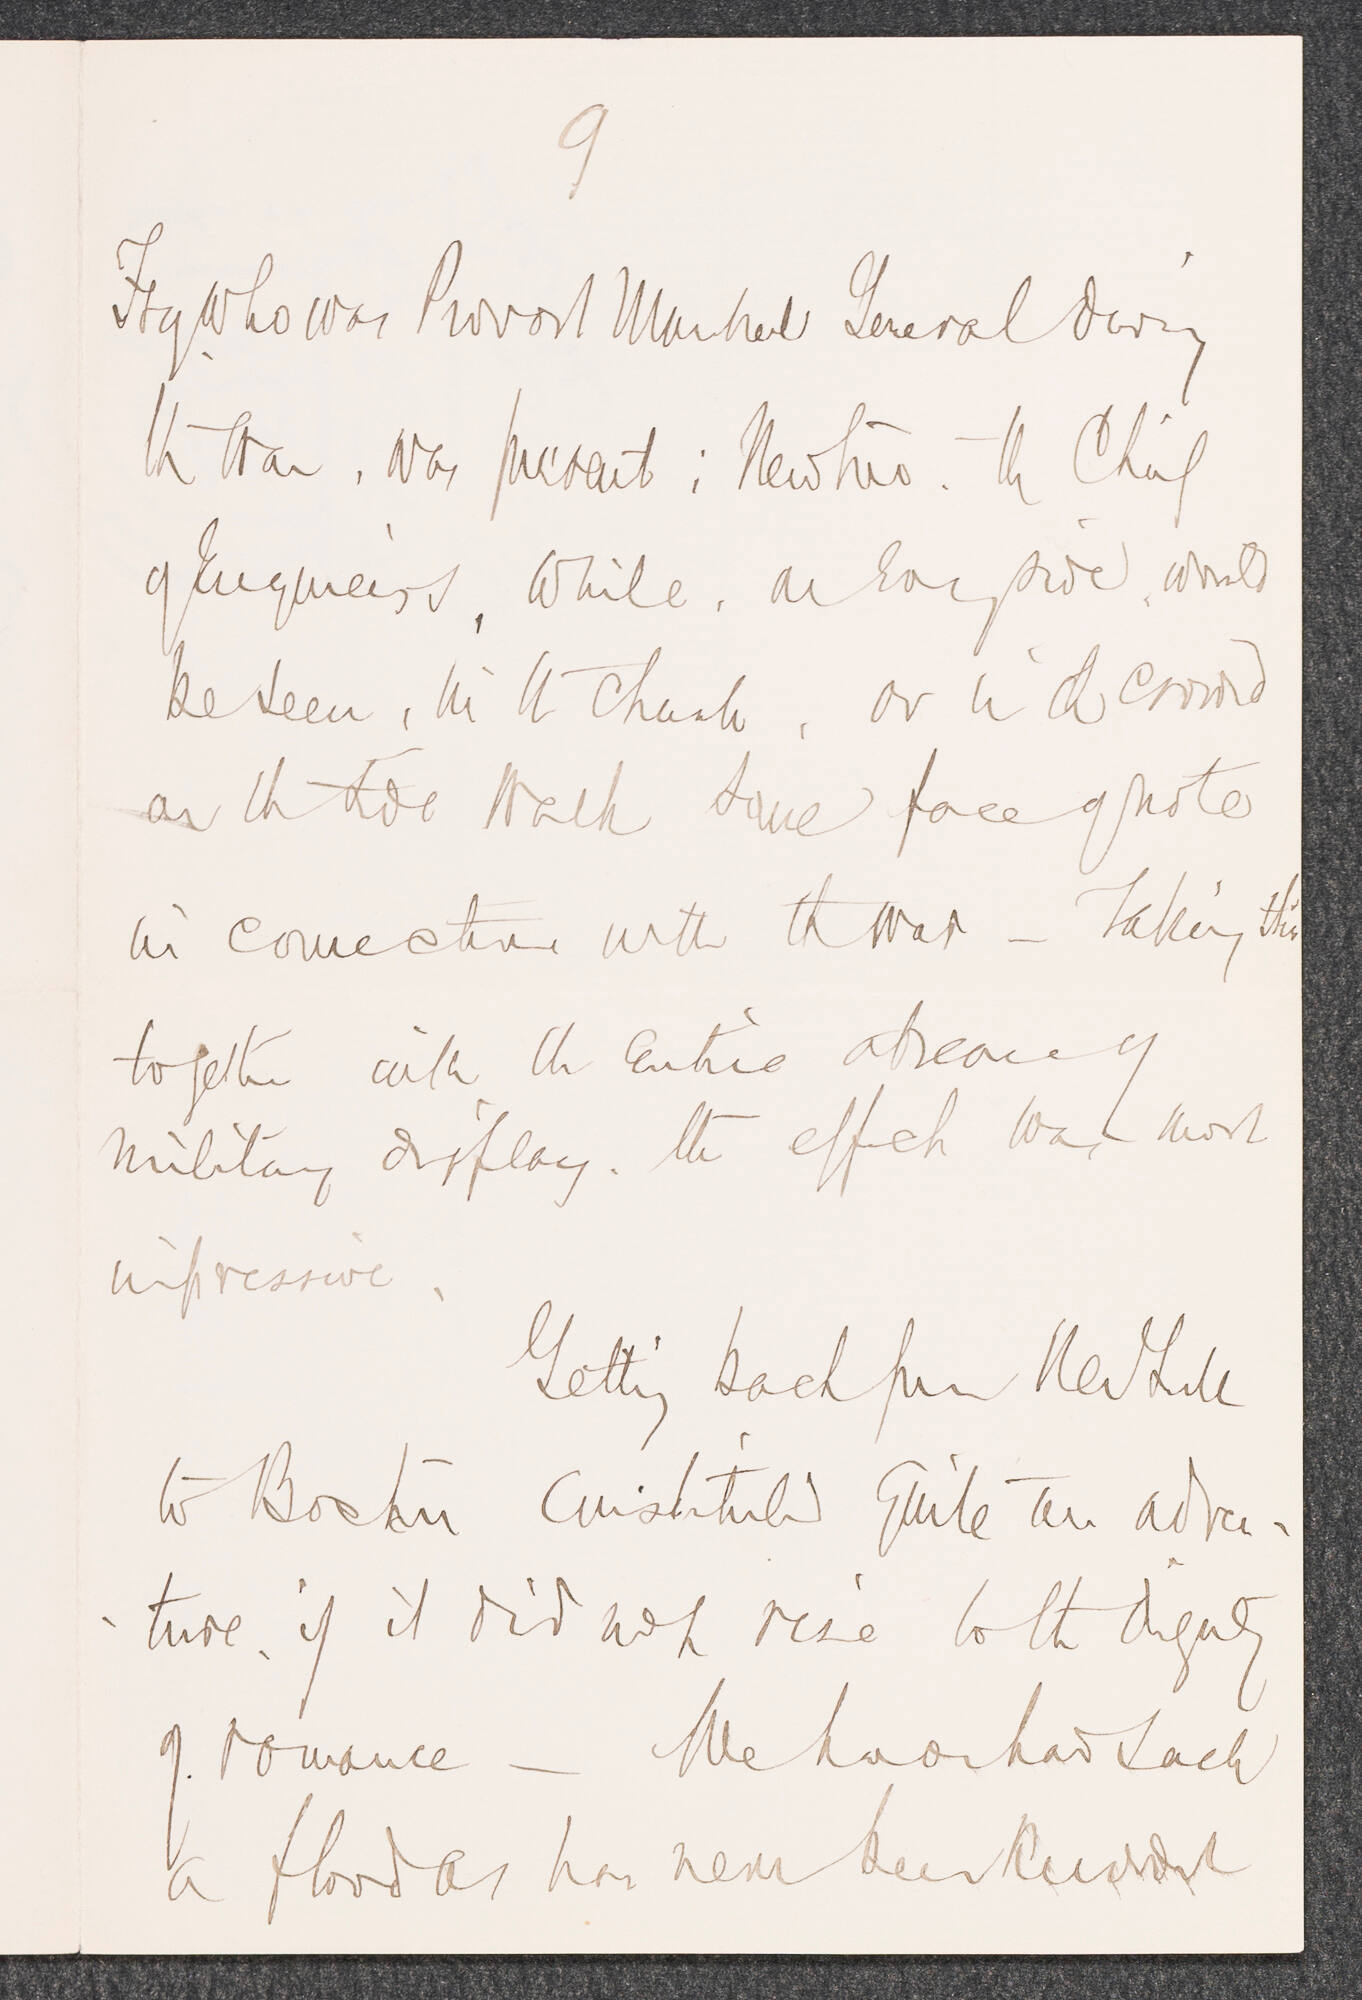 9
Fry who was Provost Marshal General during
the War, was present; Newton - the Chief
of Engineers, while, on every side, would
be seen, in the church, or in the crowd
on the side walk some face of note
in connection with the war — Taking this
together with the entire absence of
military display. the effect was most
impressive.
Getting back from New York
to Boston constituted quite an adven-
-ture, if it did not rise to the dignity
of romance — We have had such
a flood as has never been known